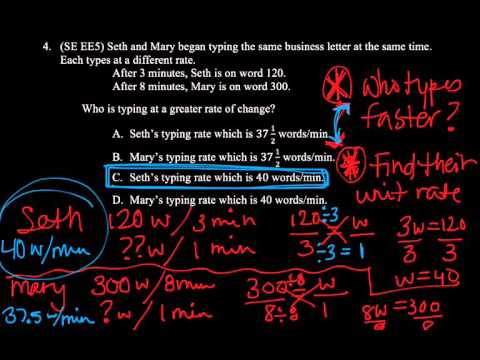 4. (SE EE5) Seth and Mary began typing the same business letter at the same time.
Each types at a different rate.
After 3 minutes, Seth is on word 120.
After 8 minutes, Mary is on word 300.
Who is typing at a greater rate of change?
A. Seth's typing rate which is 37 1/2 words/min.
B. Mary's typing rate which is 37 1/2 words/min.
C. Seth's typing rate which is 40 words/min.
D. Mary's typing rate which is 40 words/min.
Who types
faster?
Find their
unit rate
Seth
40 w/min
120 w / 3 min
?? w / 1 min
120 ÷3 w
3 ÷3 = 1
3w = 120
3 3
w = 40
Mary
37.5 w/min
300 w / 8 min
? w / 1 min
300 ÷8 w
8 ÷8 1
8w = 300
8 8